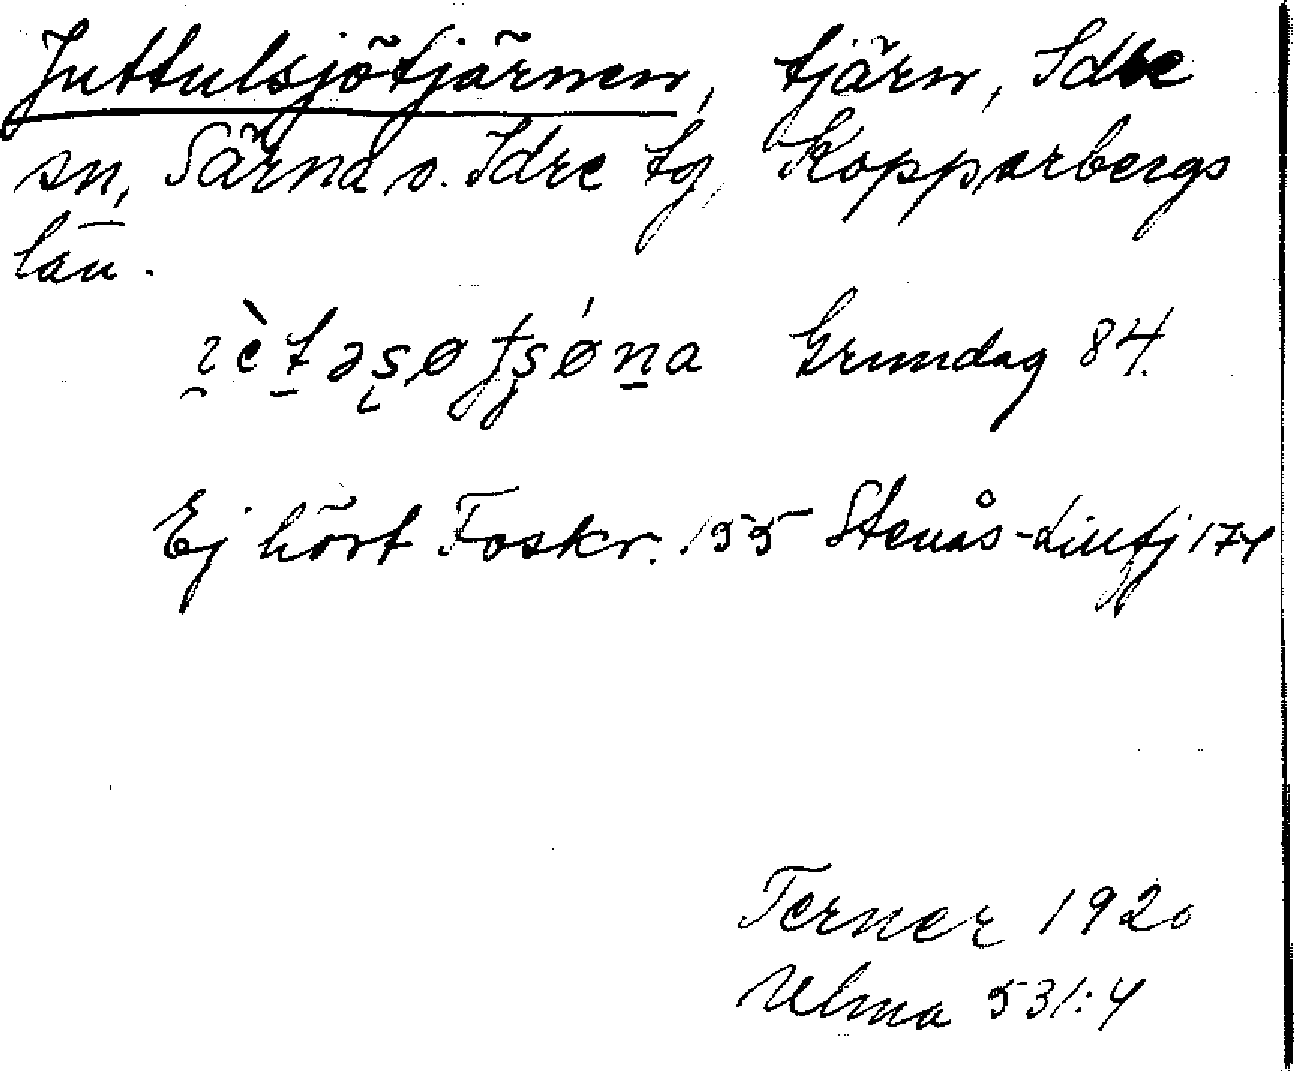 Juttulsjötjärnen, tjärn, Idre
sn, Särna o. Idre tg, Kopparbergs
län.
Grundag 84.
Ej hört Foskr. 155 Stenås- 174
Terner 1920
Ulma 531:4